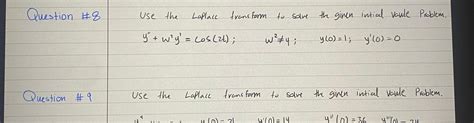 Question #8 Use the Laplace transform to solve the given intial Vaule Problem.
y" + w²y' = cos(2t); w² ≠ 4; y(0)=1; y'(0)=0
Question #9 Use the Laplace transform to solve the given intial Vaule Problem.